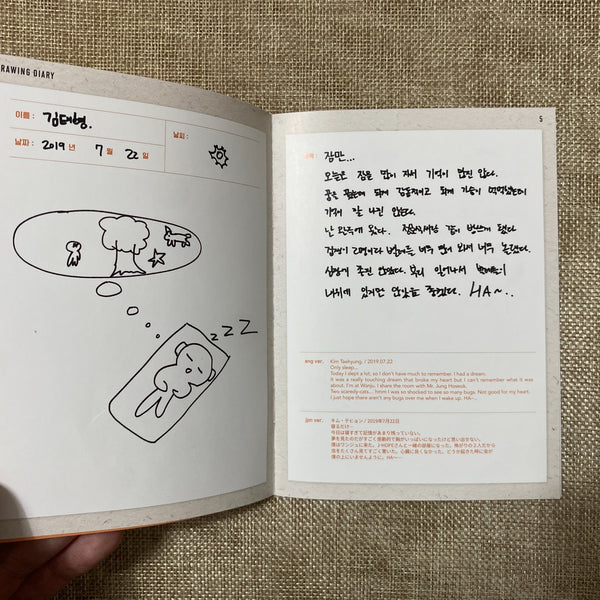 RAWING DIARY
이름 : 김태형.
날짜 : 2019 년 7 월 22 일
날씨 :
z z Z
5
제목 : 잠만...
오늘은 잠을 많이 자서 기억이 많진 않다.
꿈을 꿨는데 되게 감동적이고 되게 가슴이 먹먹했는데
기억이 잘 나진 않는다.
난 완주에 왔다. 정호석씨랑 같이 방쓰게 됐다
겁쟁이 2명이라 벌레를 너무 많이 봐서 너무 놀랬다.
심장에 좋진 않았다. 부디 일어나서 벌레들이
나위에 있지만 않았음 좋겠다. HA~..
eng ver.
Kim Taehyung. / 2019.07.22
Only sleep...
Today I slept a lot, so I don't have much to remember. I had a dream.
It was a really touching dream that broke my heart but I can't remember what it was
about. I'm at Wanju. I share the room with Mr. Jung Hoseok.
Two scaredy-cats... hmm I was so shocked to see so many bugs. Not good for my heart.
I just hope there aren't any bugs over me when I wake up. HA~..
jpn ver.
キム・テヒョン / 2019年7月22日
寝るだけ…
今日は寝すぎて記憶があまり残っていない。
夢を見たのだがすごく感動的で胸がいっぱいになったけど思い出せない。
僕はワンジュに来た。J-HOPEさんと一緒の部屋になった。怖がりの２人だから
虫をたくさん見てすごく驚いた。心臓に良くなかった。どうか起きた時に虫が
僕の上にいませんように。HA～…